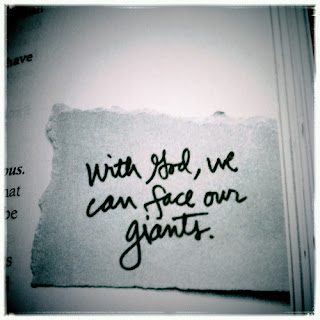 have
ous.
hat
be
s
With God, we
can face our
giants.